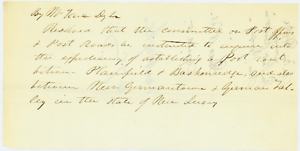 By Mr Ten Dyke
Resolved that the committee on Post offices
& Post Roads be instructed to inquire into
the expediency of establishing a Post road
between Plainfield & Baskenridge, and also
between New Germantown & German Val-
ley in the State of New Jersey